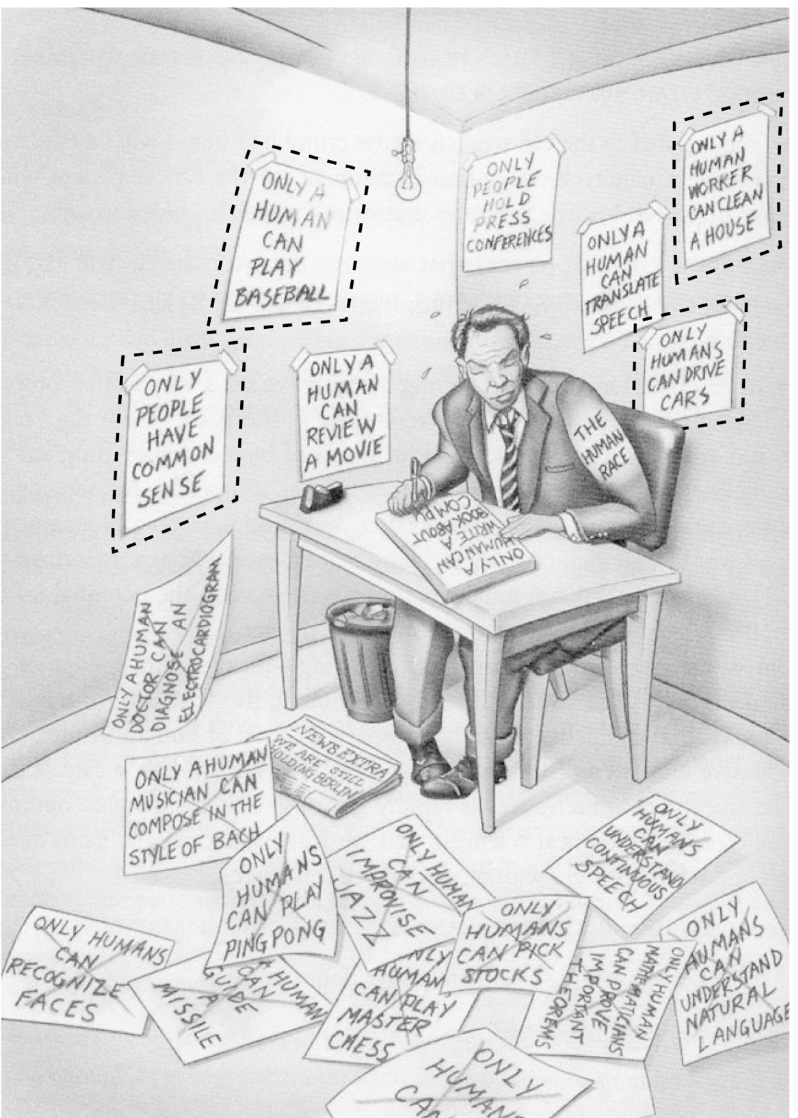 ONLY A
HUMAN
CAN
PLAY
BASEBALL
ONLY
PEOPLE
HOLD
PRESS
CONFERENCES
ONLY A
HUMAN
WORKER
CAN CLEAN
A HOUSE
ONLY A
HUMAN
CAN
TRANSLATE
SPEECH
ONLY
HUMANS
CAN DRIVE
CARS
ONLY
PEOPLE
HAVE
COMMON
SENSE
ONLY A
HUMAN
CAN
REVIEW
A MOVIE
THE
HUMAN
RACE
ONLY A
HUMAN CAN
WRITE A
BOOK ABOUT
ONLY A HUMAN
DOCTOR CAN
DIAGNOSE AN
ELECTROCARDIOGRAM
NEWS EXTRA
WE ARE STILL
HOLDING BERLIN
ONLY A HUMAN
MUSICIAN CAN
COMPOSE IN THE
STYLE OF BACH
ONLY
HUMANS
CAN PLAY
PING PONG
ONLY HUMANS
CAN
IMPROVISE
JAZZ
ONLY
HUMANS
CAN
UNDERSTAND
CONTINUOUS
SPEECH
ONLY HUMANS
CAN
RECOGNIZE
FACES
A HUMAN
CAN
GUIDE
A
MISSILE
ONLY
HUMAN
CAN PLAY
MASTER
CHESS
ONLY
HUMANS
CAN PICK
STOCKS
ONLY HUMAN
MATHEMATICIANS
CAN PROVE
IMPORTANT
THEOREMS
ONLY
HUMANS
CAN
UNDERSTAND
NATURAL
LANGUAGE
ONLY
HUMANS
CAN